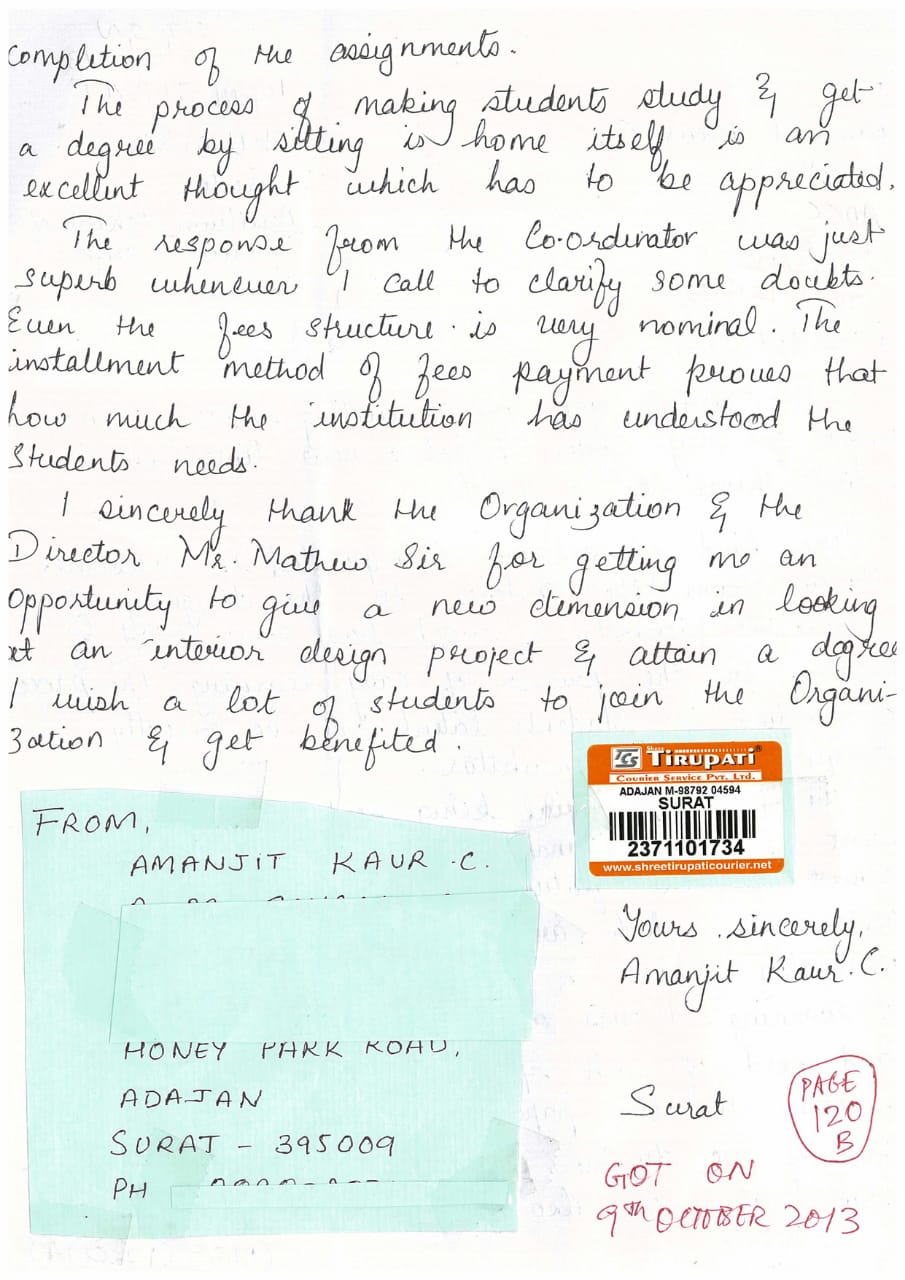 completion of the assignments.
The process of making students study & get
a degree by sitting is home itself is an
excellent thought which has to be appreciated.
The response from the Co-ordinator was just
superb whenever I call to clarify some doubts.
Even the fees structure is very nominal. The
installment method of fees payment proves that
how much the institution has understood the
Students needs.
I sincerely thank the Organization & the
Director Mr. Mathew Sir for getting me an
opportunity to give a new demension in looking
at an interior design project & attain a degree
I wish a lot of students to join the Organi-
zation & get benefited.
Shree TIRUPATI®
TCS
COURIER SERVICE PVT. LTD.
ADAJAN M-98792 04594
SURAT
2371101734
www.shreetirupaticourier.net
FROM,
AMANJIT KAUR .C.
HONEY PARK ROAD,
ADAJAN
SURAT - 395009
PH
Yours sincerely,
Amanjit Kaur.C.
Surat
PAGE
120
B
GOT ON
9th OCTOBER 2013